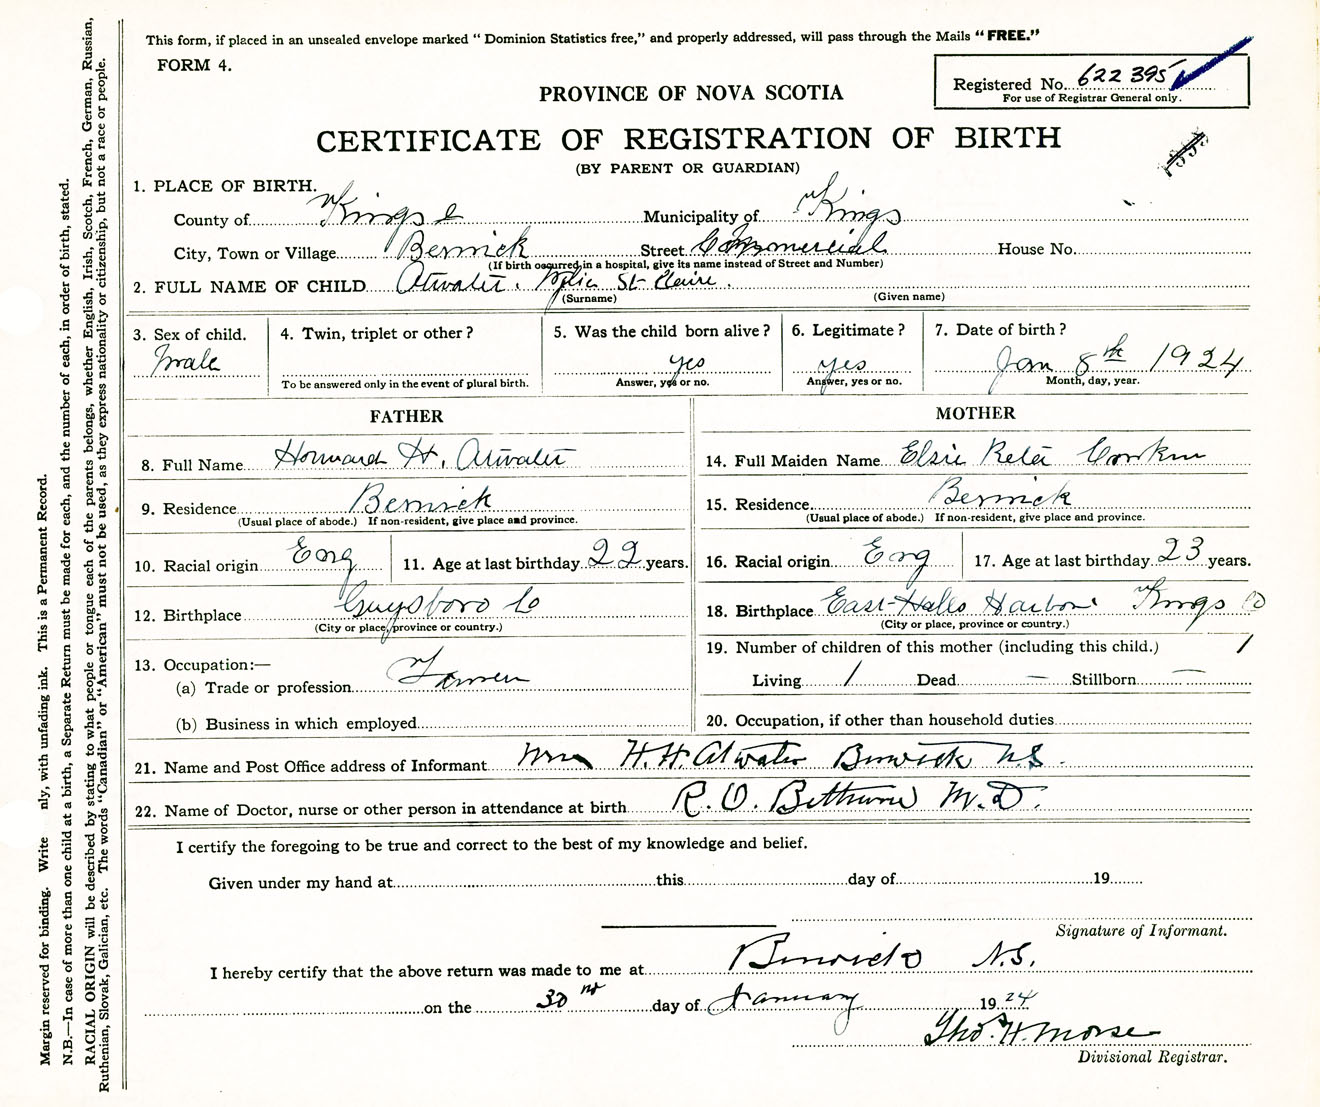 This form, if placed in an unsealed envelope marked "Dominion Statistics free," and properly addressed, will pass through the Mails "FREE."
FORM 4.
Registered No. 622 395
For use of Registrar General only.
PROVINCE OF NOVA SCOTIA
CERTIFICATE OF REGISTRATION OF BIRTH
(BY PARENT OR GUARDIAN)
1. PLACE OF BIRTH.
County of Kings Municipality of Kings
City, Town or Village Berwick Street Commercial House No.
(If birth occurred in a hospital, give its name instead of Street and Number)
2. FULL NAME OF CHILD Atwater. St Claire.
(Surname) (Given name)
3. Sex of child. 4. Twin, triplet or other? 5. Was the child born alive? 6. Legitimate? 7. Date of birth?
male yes yes Jan 8th 1924
To be answered only in the event of plural birth. Answer, yes or no. Answer, yes or no. Month, day, year.
FATHER
8. Full Name Howard H. Atwater
9. Residence Berwick
(Usual place of abode.) If non-resident, give place and province.
10. Racial origin Eng 11. Age at last birthday 22 years.
12. Birthplace Guysboro Co
(City or place, province or country.)
13. Occupation:—
(a) Trade or profession Farmer
(b) Business in which employed
MOTHER
14. Full Maiden Name Elsie Reta
15. Residence Berwick
(Usual place of abode.) If non-resident, give place and province.
16. Racial origin Eng 17. Age at last birthday 23 years.
18. Birthplace East Halls Harbour Kings Co
(City or place, province or country.)
19. Number of children of this mother (including this child.) 1
Living 1 Dead — Stillborn —
20. Occupation, if other than household duties
21. Name and Post Office address of Informant Mrs H. H. Atwater Berwick N.S.
22. Name of Doctor, nurse or other person in attendance at birth R. O. Bethune M.D.
I certify the foregoing to be true and correct to the best of my knowledge and belief.
Given under my hand at this day of 19
Signature of Informant.
I hereby certify that the above return was made to me at Berwick N.S.
on the 30 day of January 1924
Thos. H. Morse
Divisional Registrar.
Margin reserved for binding. Write nly, with unfading ink. This is a Permanent Record.
N.B.—In case of more than one child at a birth, a Separate Return must be made for each, and the number of each, in order of birth, stated.
RACIAL ORIGIN will be described by stating to what people or tongue each of the parents belongs, whether English, Irish, Scotch, French, German, Russian,
Ruthenian, Slovak, Galician, etc. The words "Canadian" or "American" must not be used, as they express nationality or citizenship, but not a race or people.